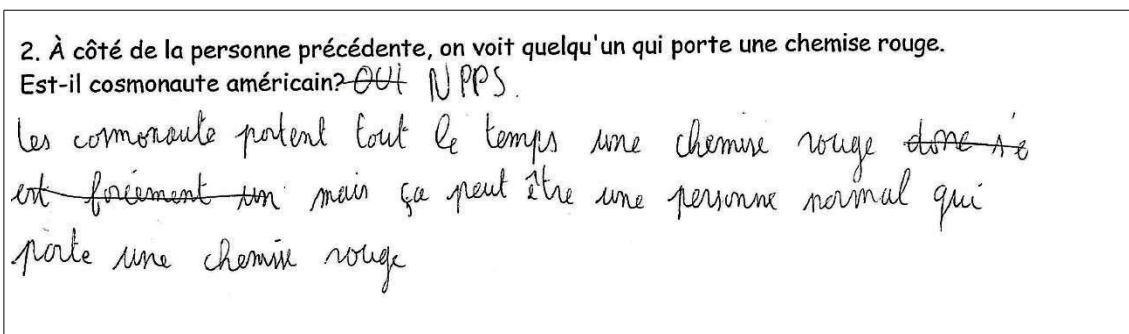 2. À côté de la personne précédente, on voit quelqu'un qui porte une chemise rouge.
Est-il cosmonaute américain? OUI NPPS.
les cosmonaute portent tout le temps une chemise rouge donc
est forcément un mais ça peut être une personne normal qui
porte une chemise rouge